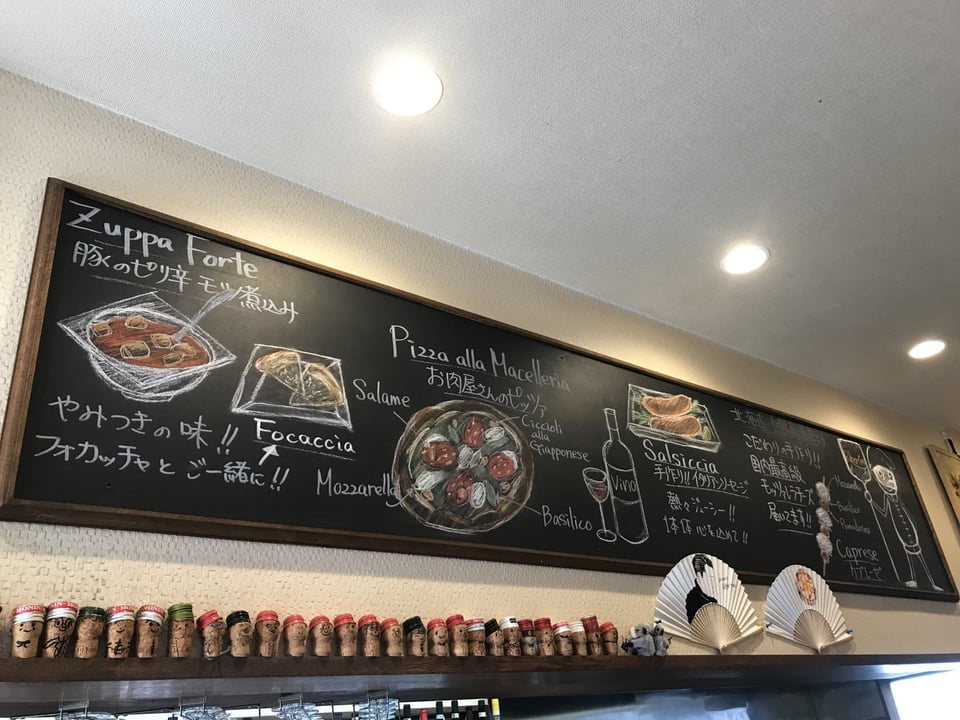 Zuppa Forte
豚のピリ辛 モツ煮込み
やみつきの味!!
フォカッチャと ご一緒に!!
Focaccia
Pizza alla Macelleria
お肉屋さんのピッツァ
Salame
Mozzarella
Ciccioli
alla
Giapponese
Basilico
Vino
Salsiccia
手作り!! イタリアンソーセージ
熱々ジューシー!!
1本1本 心を込めて!!
北海道
こだわりの手作り!!
国内最高級
モッツァレラチーズ
届いてます!!
Basilico
Pomodorino
Caprese
カプレーゼ
MONIN
MONIN
MONIN